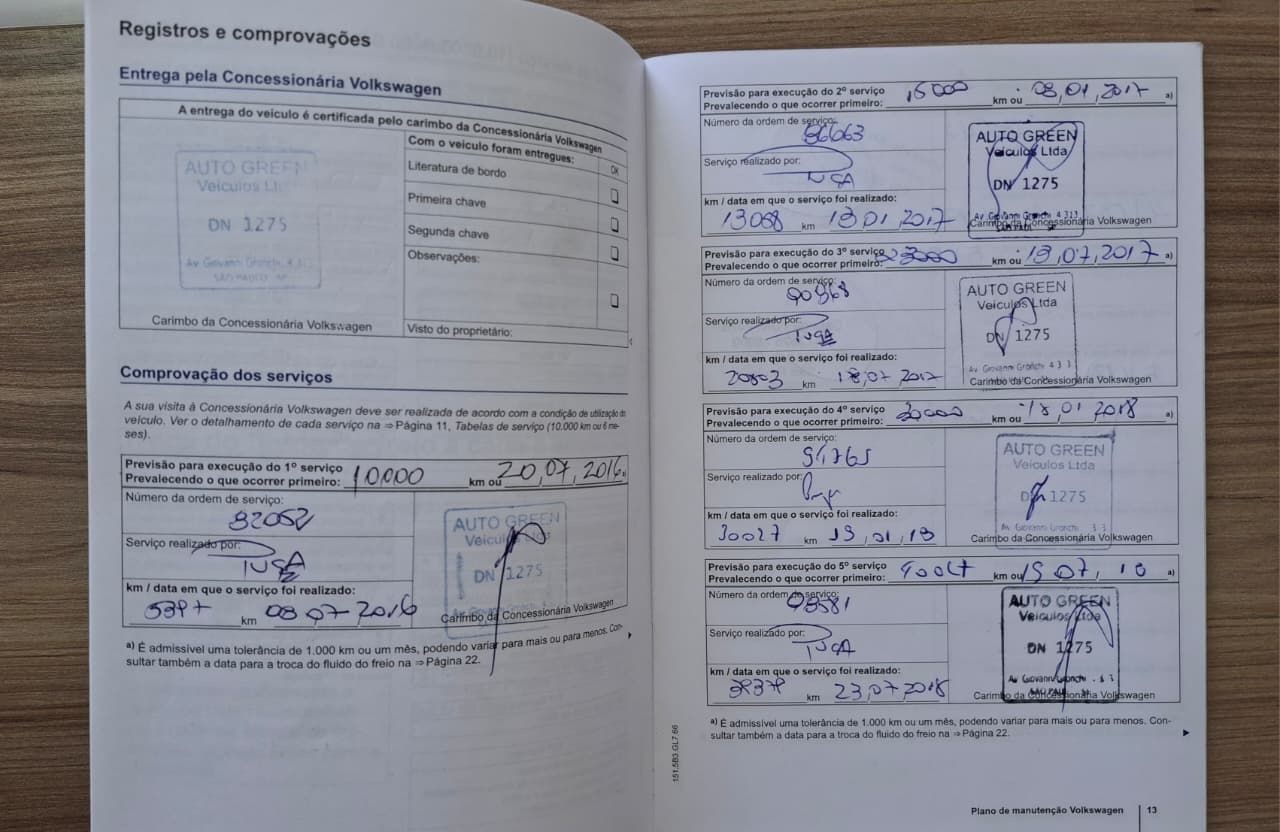 Registros e comprovações
Entrega pela Concessionária Volkswagen
A entrega do veículo é certificada pelo carimbo da Concessionária Volkswagen
AUTO GREEN
Veículos Ltda
DN 1275
Av Giovanni Gronchi 4 313
SÃO PAULO SP
Carimbo da Concessionária Volkswagen
Com o veículo foram entregues: OK
Literatura de bordo
Primeira chave
Segunda chave
Observações:
Visto do proprietário:
Comprovação dos serviços
A sua visita à Concessionária Volkswagen deve ser realizada de acordo com a condição de utilização do
veículo. Ver o detalhamento de cada serviço na ⇒ Página 11, Tabelas de serviço (10.000 km ou 6 me-
ses).
Previsão para execução do 1º serviço
Prevalecendo o que ocorrer primeiro: 10000 km ou 20,07,2016 a)
Número da ordem de serviço:
82052
Serviço realizado por:
km / data em que o serviço foi realizado:
km 08 07 2016
AUTO GREEN
Veículos Ltda
DN 1275
Carimbo da Concessionária Volkswagen
a) É admissível uma tolerância de 1.000 km ou um mês, podendo variar para mais ou para menos. Con-
sultar também a data para a troca do fluido do freio na ⇒ Página 22.
Previsão para execução do 2º serviço
Prevalecendo o que ocorrer primeiro: 15000 km ou 08,01,2017 a)
Número da ordem de serviço:
86063
Serviço realizado por:
km / data em que o serviço foi realizado:
13068 km 13 01,2017
AUTO GREEN
Veículos Ltda,
DN 1275
Av Giovanni Gronchi 4 313
Carimbo da Concessionária Volkswagen
Previsão para execução do 3º serviço
Prevalecendo o que ocorrer primeiro: 23000 km ou 13,07,2017 a)
Número da ordem de serviço:
Serviço realizado por:
km / data em que o serviço foi realizado:
20803 km 18,07,2017
AUTO GREEN
Veículos Ltda
DN 1275
Av Giovanni Gronchi 4 3 3
Carimbo da Concessionária Volkswagen
Previsão para execução do 4º serviço
Prevalecendo o que ocorrer primeiro: 30000 km ou 18 01 2018 a)
Número da ordem de serviço:
Serviço realizado por:
km / data em que o serviço foi realizado:
30027 km 19,01,18
AUTO GREEN
Veículos Ltda
DN 1275
Av Giovanni Gronchi 3 3
Carimbo da Concessionária Volkswagen
Previsão para execução do 5º serviço
Prevalecendo o que ocorrer primeiro: km ou 19 07, 18 a)
Número da ordem de serviço:
93581
Serviço realizado por:
km / data em que o serviço foi realizado:
km 23,07,2018
AUTO GREEN
Veículos Ltda
DN 1275
Av Giovanni Gronchi
Carimbo da Concessionária Volkswagen
a) É admissível uma tolerância de 1.000 km ou um mês, podendo variar para mais ou para menos. Con-
sultar também a data para a troca do fluido do freio na ⇒ Página 22.
151.5B3.GL7.66
Plano de manutenção Volkswagen 13